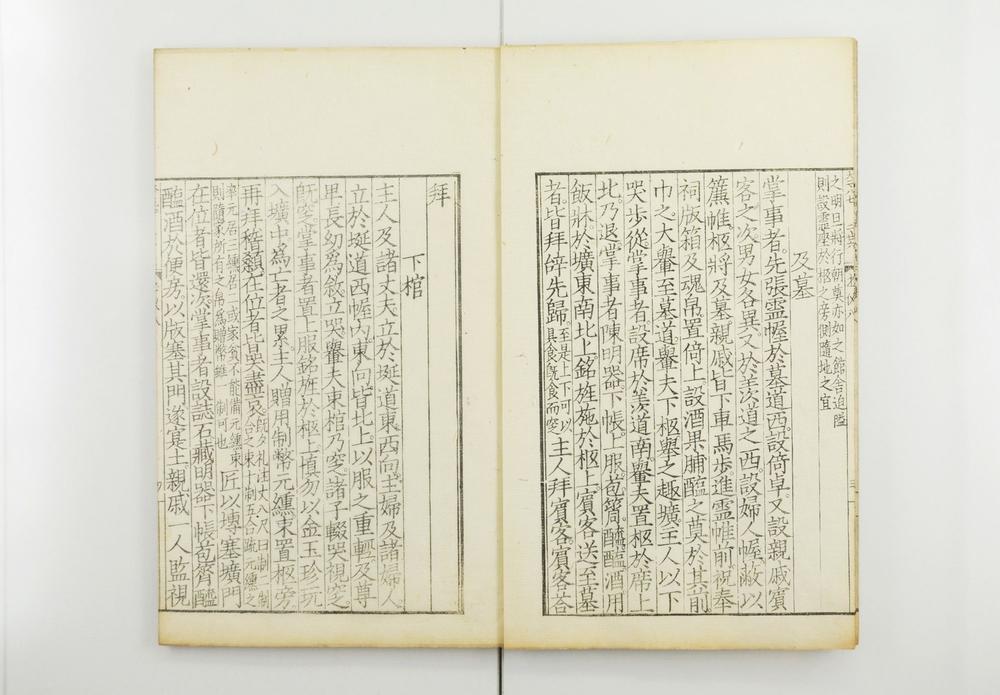 之明日將行朝奠亦如之館舍迫隘
則設靈座於柩之旁側隨地之宜
及墓
掌事者先張靈幄於墓道西設倚卓又設親戚賓
客之次男女各異又於羨道之西設婦人幄蔽以
簾帷柩將及墓親戚皆下車馬步進靈帷前祝奉
祠版箱及魂帛置倚上設酒果脯醢之奠於其前
巾之大轝至墓道轝夫下柩舉之趣壙主人以下
哭步從掌事者設席於羨道南轝夫置柩於席上
北乃退掌事者陳明器下帳上服苞筲醯醢酒用
飯牀於壙東南北上銘旌施於柩上賓客送至墓
者皆拜辝先歸至是上下可以
具食既食而窆主人拜賓客賓客荅
拜
下棺
主人及諸丈夫立於埏道東西向主婦及諸婦人
立於埏道西幄內東向皆北上以服之重輕及尊
卑長幼爲敘立哭轝夫束棺乃窆諸子輟哭視窆
既窆掌事者置上服銘旌於柩上慎勿以金玉珍玩
入壙中爲亡者之累主人贈用制幣元纁束置柩旁
再拜稽顙在位者皆哭盡哀
率元居三纁居二或家貧不能備元纁束
則隨家所有之帛爲贈幣雖一制可也
匠以塼塞壙門
在位者皆還次掌事者設誌石藏明器下帳苞筲醯
醢酒於便房以版塞其門遂實土親戚一人監視